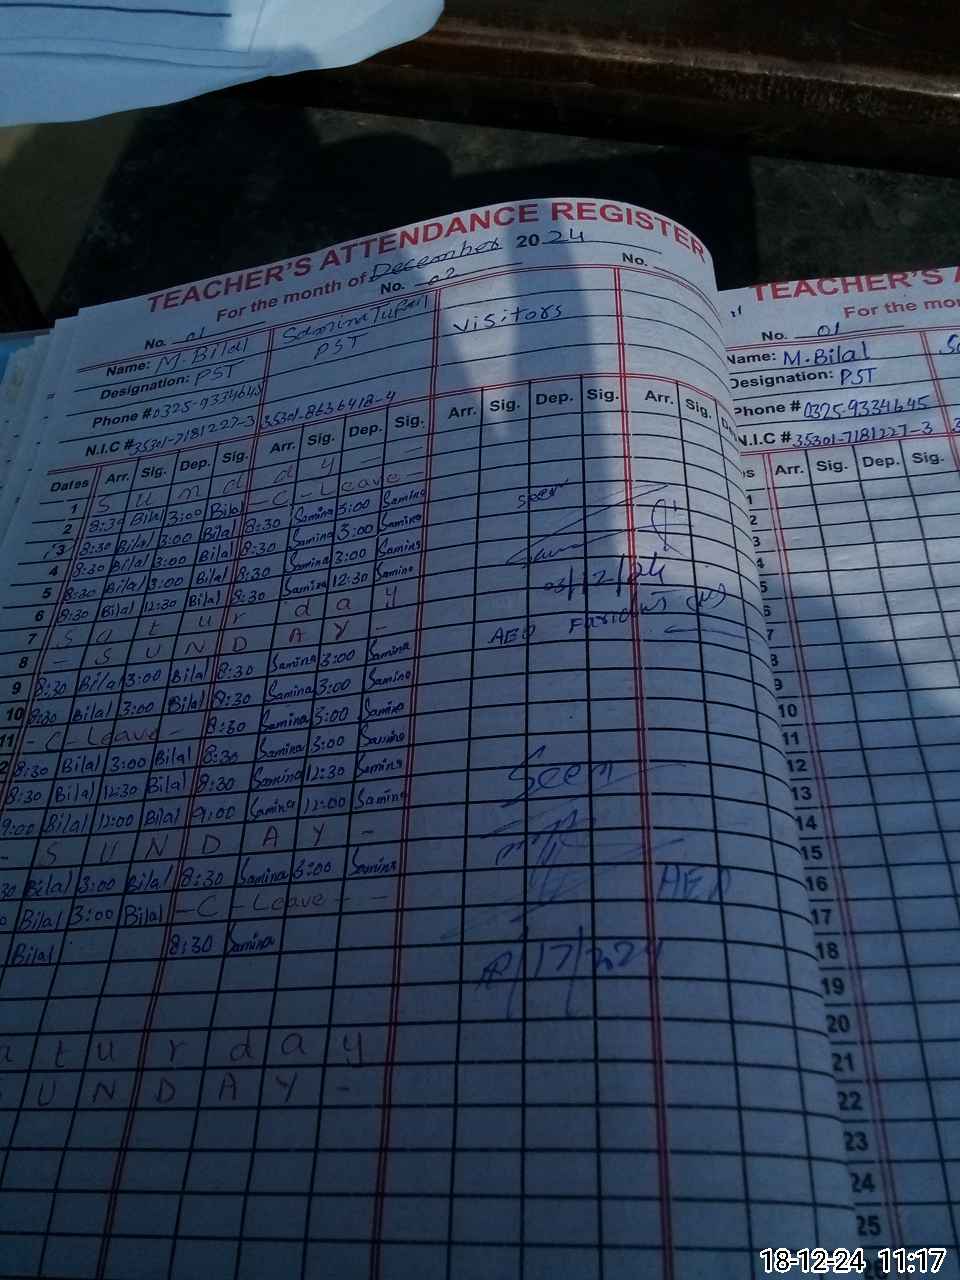 TEACHER'S ATTENDANCE REGISTER
For the month of December 2024
No. 01 No. 02 No.
Name: M.Bilal Samina Tufail Visitors
Designation: PST PST
Phone # 0325-9334645
N.I.C # 35301-7181227-3 35301-8636418-4
Dates Arr. Sig. Dep. Sig. Arr. Sig. Dep. Sig. Arr. Sig. Dep. Sig. Arr. Sig.
1 S u n d a y - -
2 8:30 Bilal 3:00 Bilal - C - Leave -
3 8:30 Bilal 3:00 Bilal 8:30 Samina 3:00 Samina
4 8:30 Bilal 3:00 Bilal 8:30 Samina 3:00 Samina
5 8:30 Bilal 3:00 Bilal 8:30 Samina 3:00 Samina
6 8:30 Bilal 12:30 Bilal 8:30 Samina 12:30 Samina
7 S a t u r d a y
8 - S U N D A Y -
9 8:30 Bilal 3:00 Bilal 8:30 Samina 3:00 Samina
10 8:30 Bilal 3:00 Bilal 8:30 Samina 3:00 Samina
11 - C - Leave - 8:30 Samina 3:00 Samina
2 8:30 Bilal 3:00 Bilal 8:30 Samina 3:00 Samina
8:30 Bilal 12:30 Bilal 8:30 Samina 12:30 Samina
9:00 Bilal 12:00 Bilal 9:00 Samina 12:00 Samina
- S U N D A Y -
30 Bilal 3:00 Bilal 8:30 Samina 3:00 Samina
0 Bilal 3:00 Bilal - C - Leave - -
Bilal 8:30 Samina
a t u r d a y
U N D A Y -
seen
03/12/24
AEO
Seen
AEO
TEACHER'S A
For the mon
No. 01
Name: M.Bilal
Designation: PST
Phone # 0325-9334645
N.I.C # 35301-7181227-3
Arr. Sig. Dep. Sig.
1
2
3
4
5
6
7
8
9
10
11
12
13
14
15
16
17
18
19
20
21
22
23
24
25
18-12-24 11:17